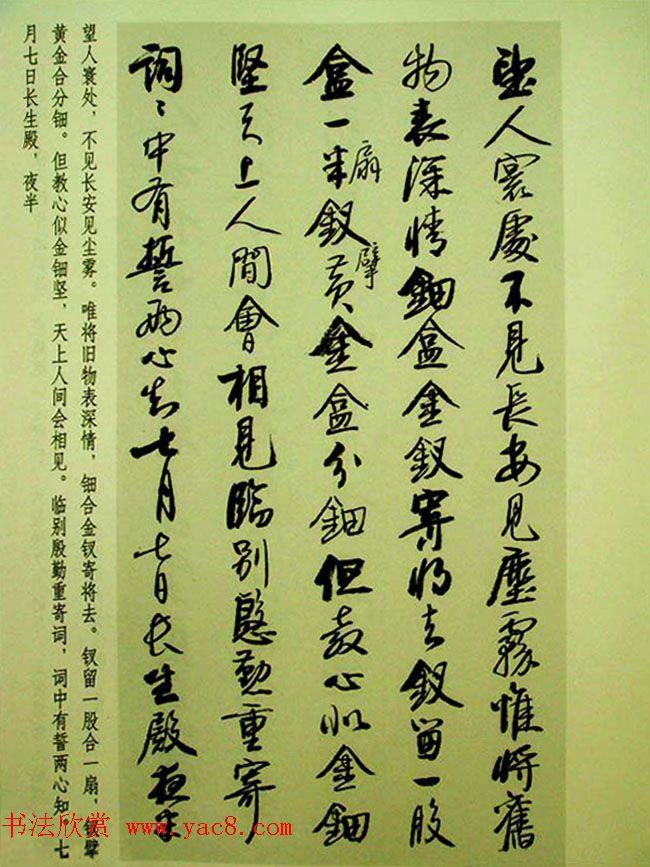 望人寰處不見長安見塵霧惟將舊
物表深情鈿盒金釵寄將去釵留一股
扇
擘
盒一半釵黄金盒分鈿但教心似金鈿
堅天上人間會相見臨別慇勤重寄
詞〻中有誓兩心知七月七日長生殿夜半
望人寰处，不见长安见尘雾。唯将旧物表深情，钿合金钗寄将去。钗留一股合一扇，钗擘
黄金合分钿。但教心似金钿坚，天上人间会相见。临别殷勤重寄词，词中有誓两心知。七
月七日长生殿，夜半
书法欣赏 www.yac8.com